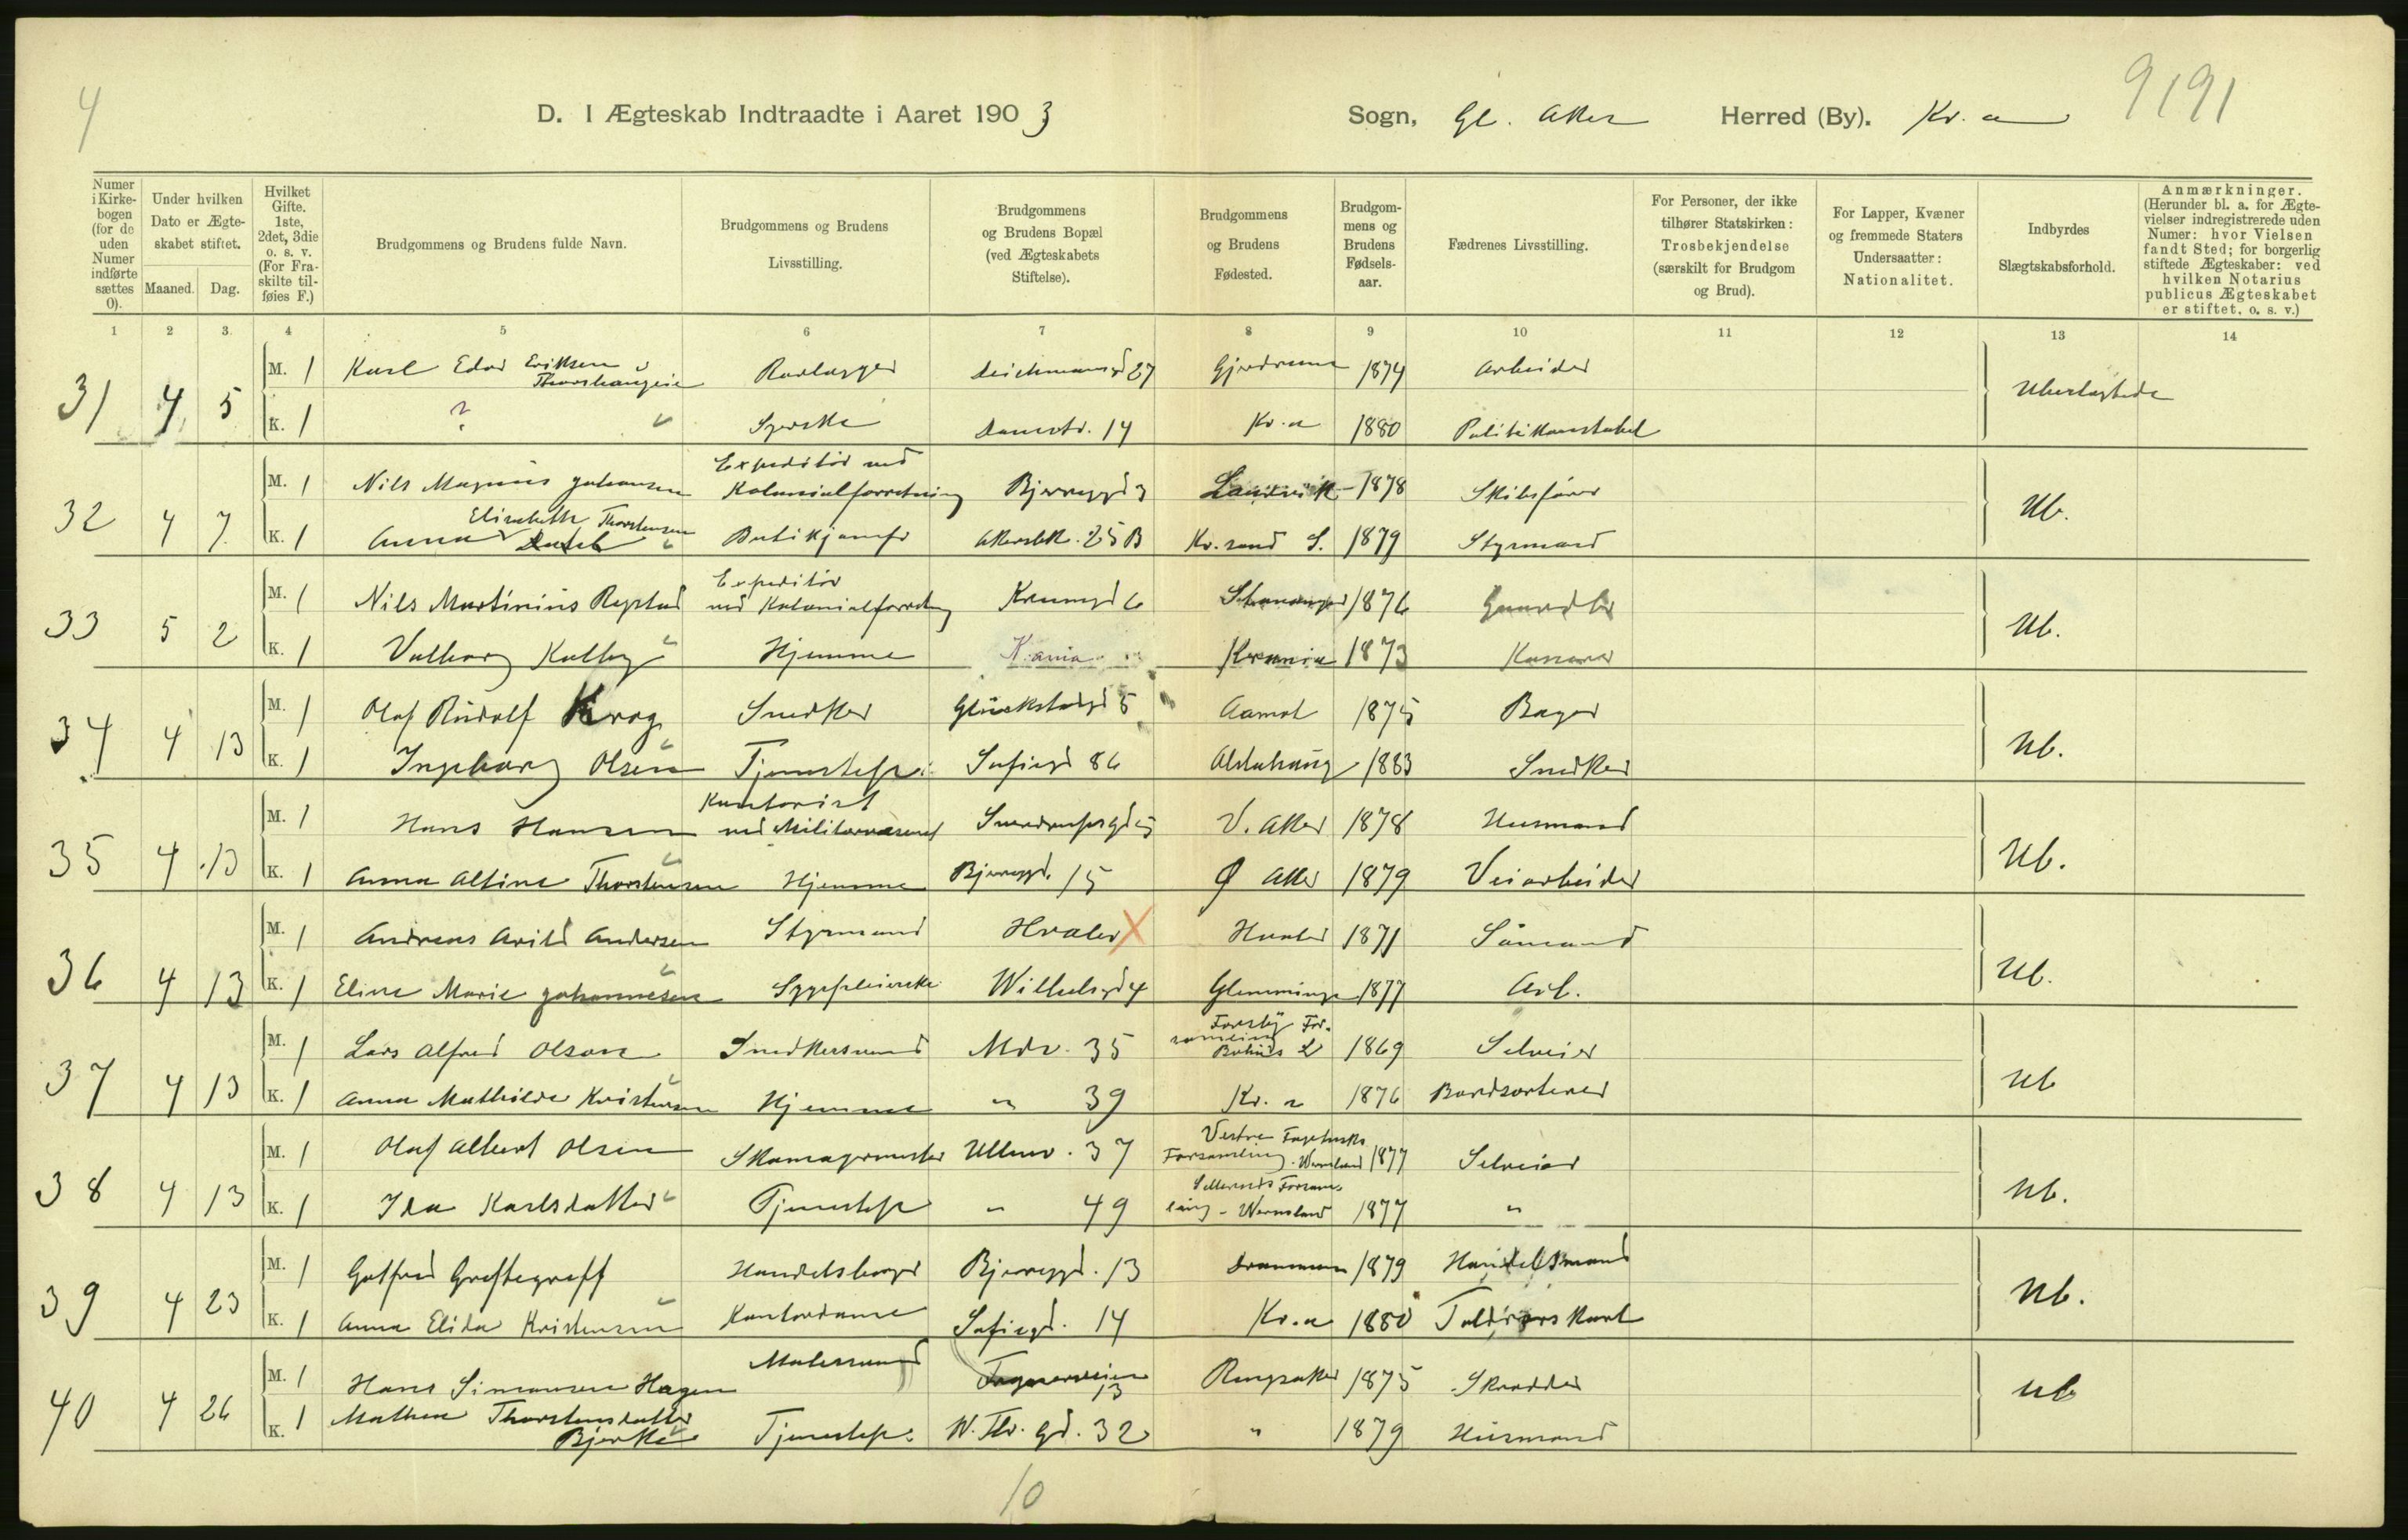 4
D. I Ægteskab Indtraadte i Aaret 1903 Sogn, Gl. Aker Herred (By). Kr. a 9191
Numer i Kirkebogen (for de uden Numer indførte sættes 0).
Under hvilken Dato er Ægteskabet stiftet.
Maaned. Dag.
Hvilket Gifte. 1ste, 2det, 3die o. s. v. (For Fraskilte tilføies F.)
Brudgommens og Brudens fulde Navn.
Brudgommens og Brudens Livsstilling.
Brudgommens og Brudens Bopæl (ved Ægteskabets Stiftelse).
Brudgommens og Brudens Fødested.
Brudgommens og Brudens Fødselsaar.
Fædrenes Livsstilling.
For Personer, der ikke tilhører Statskirken: Trosbekjendelse (særskilt for Brudgom og Brud).
For Lapper, Kvæner og fremmede Staters Undersaatter: Nationalitet.
Indbyrdes Slægtskabsforhold.
Anmærkninger. (Herunder bl. a. for Ægtevielser indregistrerede uden Numer: hvor Vielsen fandt Sted; for borgerlig stiftede Ægteskaber: ved hvilken Notarius publicus Ægteskabet er stiftet, o. s. v.)
1 2 3 4 5 6 7 8 9 10 11 12 13 14
31 4 5 M. 1 Karl Edvr Eriksen Thorshaugeie Rørlægger Deichmansgd 27 Gjerdrum 1874 Arbeider Ubeslægtede
K. 1 ? Syerske Damstr. 14 Kr. a 1880 Politikonstabel
32 4 7 M. 1 Nils Magnus Johansen Expeditør ved Kolonialforretning Bjerregd 3 Landvik 1878 Skibsfører Ub.
K. 1 Anna Elisabeth Thorstensen Butikjomfr Akersbk. 25 B Kr. sand S. 1879 Styrmand
33 5 2 M. 1 Nils Martinius Repstad Expeditør ved Kolonialforretng 6 Stavanger 1876 Gaardbr Ub.
K. 1 Valborg Kolby Hjemme K.ania Krania 1873
34 4 13 M. 1 Olaf Rudolf Krog Snedker Glückstadgd 5 Aamot 1875 Bager Ub.
K. 1 Ingeborg Olsen Tjenestep. Sofiegd 86 Alstahaug 1883 Snedker
35 4 13 M. 1 Hans Hansen Kontorist ved Militærvæsenet Sverdrupsgd 5 V. Aker 1878 Husmand Ub.
K. 1 Anna Altine Thorstensen Hjemme Bjerregd. 15 Ø Aker 1879 Veiarbeider
36 4 13 M. 1 Andreas Arild Andersen Styrmand Hvaler X Hvaler 1871 Sømand Ub.
K. 1 Eline Marie Johannesen Sygepleierske Wilhelsgd 4 Glemminge 1877 Arb.
37 4 13 M. 1 Lars Alfred Olsson Snedkersvend Mdv. 35 Forsby Forsamling Bohus L 1869 Selveier Ub
K. 1 Anna Mathilde Kristensen Hjemme " 39 Kr. a 1876 Bordsorterer
38 4 13 M. 1 Olaf Albert Olsen Skomagermester Ullev. 37 Vestre Forsamling. Wermland 1877 Selveier Ub.
K. 1 Ida Karlsdatter Tjenestep " 49 Forsamling - Wermland 1877 "
39 4 23 M. 1 Gotfred Greftegreff Handelsborger Bjerregd. 13 Drammen 1879 Handelsmand Ub.
K. 1 Anna Elida Kristensen Kontordame Sofiegd. 14 Kr. a 1880 Toldrorskarl
40 4 26 M. 1 Hans Simonsen Hagen Malersvend Fagerveien 13 Ringsaker 1875 Skrædder Ub
K. 1 Mathea Thorstensdatter Bjerke Tjenestep. W. Thr. gd. 32 " 1879 Husmand
10